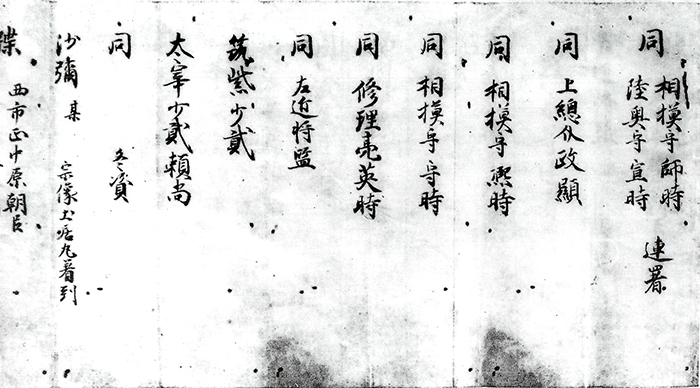 同 相模守師時
陸奥守宣時 連署
同 上總介政顯
同 相模守熈時
同 相模守守時
同 修理亮英時
同 左近将監
筑紫少貳
太宰少貳頼尚
同 冬資
沙彌某 宗像土居丸着到
牒 西市正中原朝臣